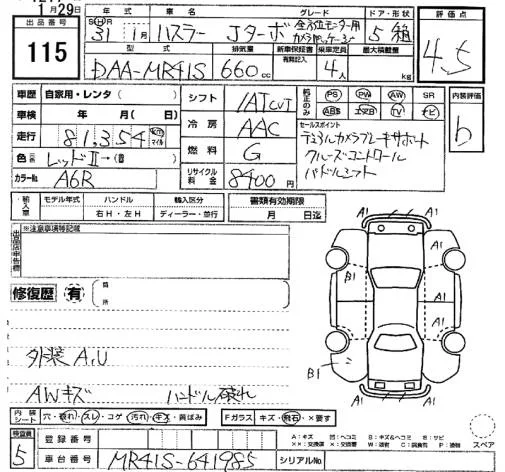 1月29日
出品番号 115
年式 S H R 31年 1月 車名 ハスラー グレード Jターボ 全方位モニター用カメラパッケージ ドア・形状 5 組
評価点 4.5
型式 DAA-MR41S 排気量 660cc 新車保証書 有無記入 乗車定員 4人 最大積載量 kg
車歴 自家用・レンタ( )
車検 年 月(日)
走行 81,354 km マイル
色 レッドⅡ→( )
カラーNo. A6R
シフト IATCVT
冷房 AAC
燃料 G
リサイクル料金 8400円
純正のみ PS PW AW SR
ABS エアB TV ナビ
セールスポイント
デュアルカメラブレーキサポート
クルーズコントロール
パドルシフト
内装評価 b
輸入車 モデル年式 ハンドル 右H・左H 輸入区分 ディーラー・並行
書類有効期限 月 日迄
出品店申告欄 ※注意事項等記載
修復歴 有 箇所
A1 A1
A1
B1
B1
A1 A1
外装 A,U
AWキズ ハンドル破れ
内装シート 穴・破れ・スレ・コゲ・汚れ・キズ・黄ばみ
Fガラス キズ・飛石・×要す
スペア
検査員 5
登録番号
車台番号 MR41S-641985 シリアルNo.